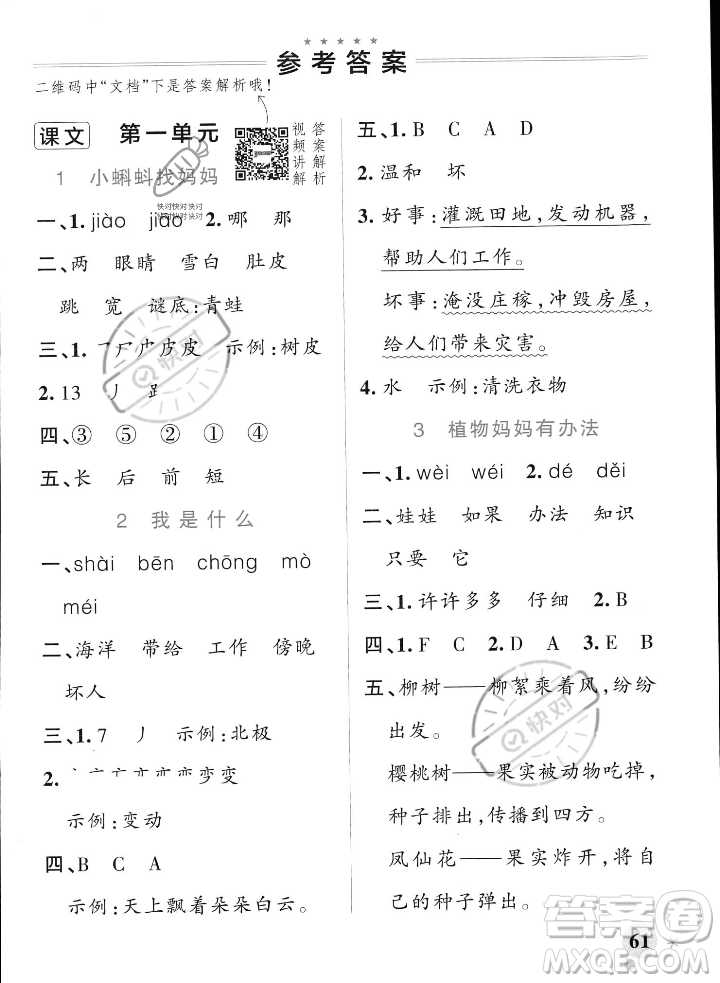 ★★★★★
参考答案
二维码中“文档”下是答案解析哦！
课文 第一单元
视频讲解
答案解析
1 小蝌蚪找妈妈
快对快对快对
快对快对快对
一、1. jiào jiāo 2. 哪 那
二、两 眼睛 雪白 肚皮
跳 宽 谜底：青蛙
三、1. 皮皮 示例：树皮
2. 13 丿
四、③ ⑤ ② ① ④
五、长 后 前 短
2 我是什么
一、shài bēn chōng mò
méi
二、海洋 带给 工作 傍晚
坏人
三、1. 7 丿 示例：北极
2. 变变
示例：变动
四、B C A
示例：天上飘着朵朵白云。
五、1. B C A D
2. 温和 坏
3. 好事：灌溉田地，发动机器，
帮助人们工作。
坏事：淹没庄稼，冲毁房屋，
给人们带来灾害。
4. 水 示例：清洗衣物
3 植物妈妈有办法
一、1. wèi wéi 2. dé děi
二、娃娃 如果 办法 知识
只要 它
三、1. 许许多多 仔细 2. B
四、1. F C 2. D A 3. E B
五、柳树——柳絮乘着风，纷纷
出发。
樱桃树——果实被动物吃掉，
种子排出，传播到四方。
凤仙花——果实炸开，将自
己的种子弹出。
快对
快对
答案圈
61